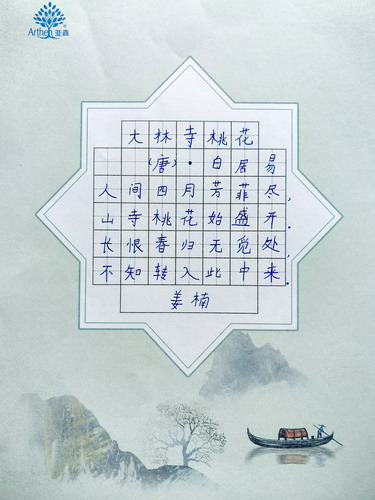 Arthen 亚鑫
大林寺桃花
(唐)·白居易
人间四月芳菲尽,
山寺桃花始盛开.
长恨春归无觅处,
不知转入此中来.
姜楠